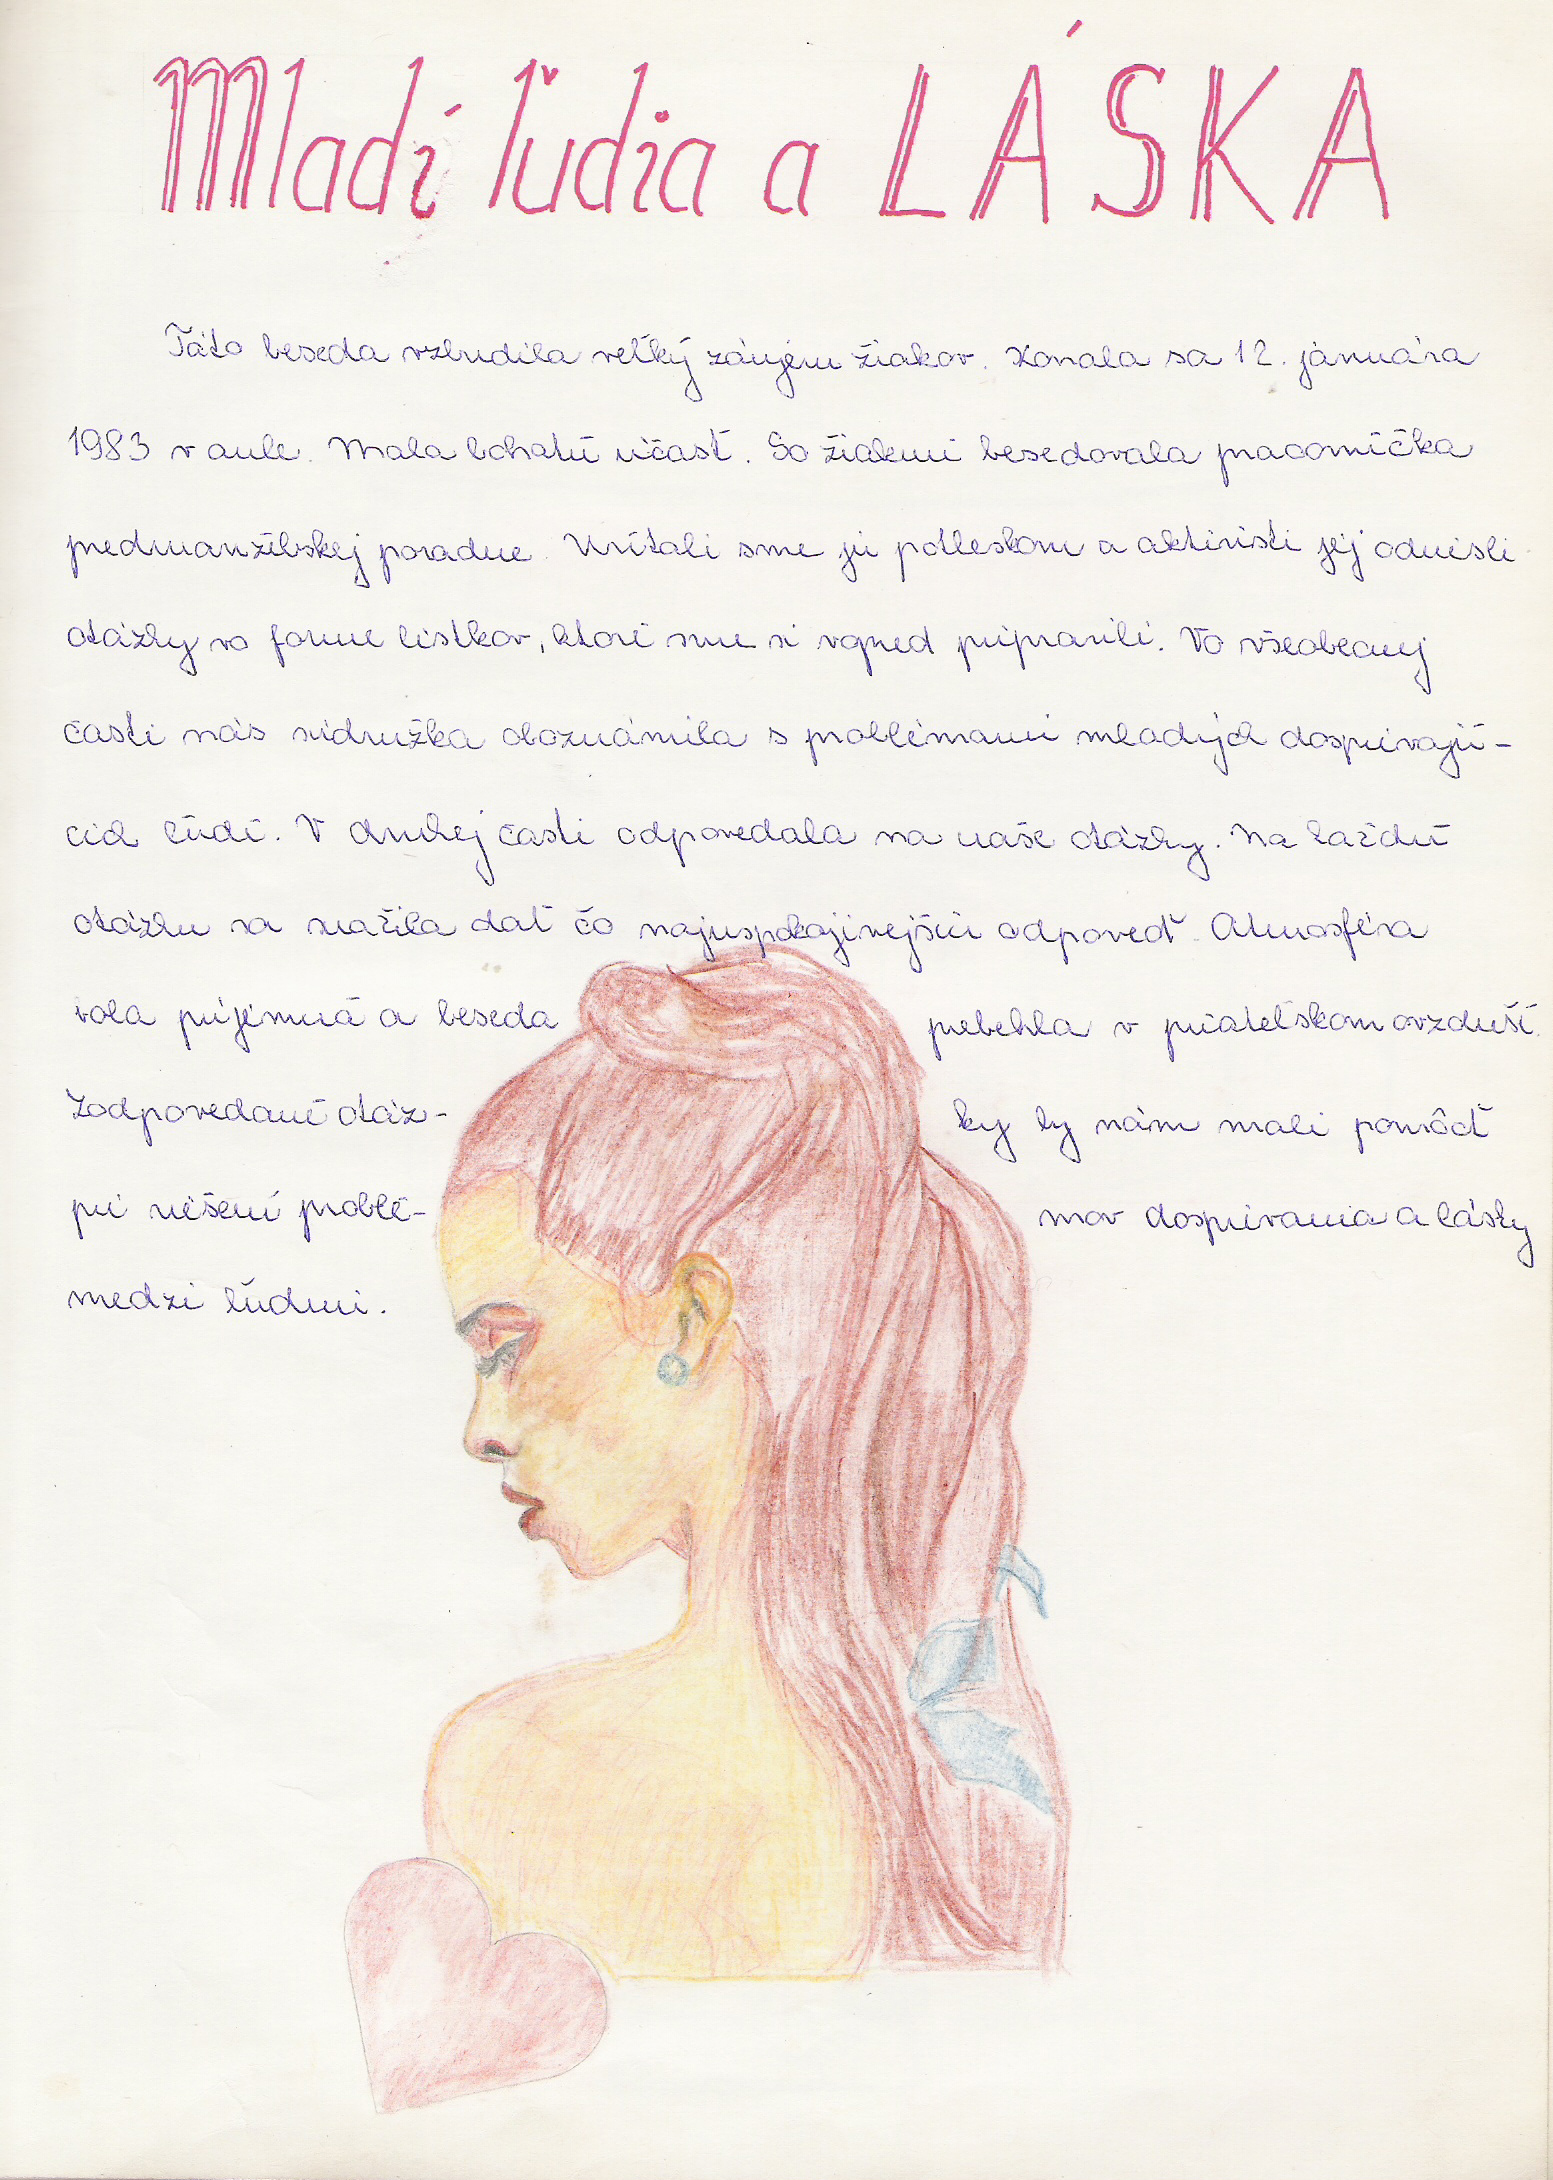 Mladí ľudia a LÁSKA
Táto beseda vzbudila veľký záujem žiakov. Konala sa 12. januára
1983 v aule. Mala bohatú účasť. So žiakmi besedovala pracovníčka
predmanžélskej poradne. Uvítali sme ju potleskom a aktivisti jej odniesli
otázky vo forme lístkov, ktoré sme si vopred pripravili. Vo všeobecnej
časti nás súdružka oboznámila s problémami mladých dospievajú-
cich ľudí. V druhej časti odpovedala na naše otázky. Na každú
otázku sa snažila dať čo najuspokojivejšiu odpoveď. Atmosféra
bola príjemná a beseda prebehla v priateľskom ovzduší.
Zodpovedané otáz- ky by nám mali pomôcť
pri riešení problé- mov dospievania a lásky
medzi ľuďmi.